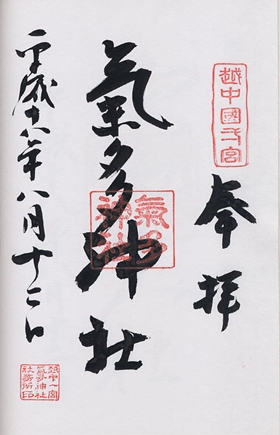 越中國一宮
奉拝
氣多神社
氣多神社
平成十六年八月十二日
越中一宮
氣多神社
社務所印